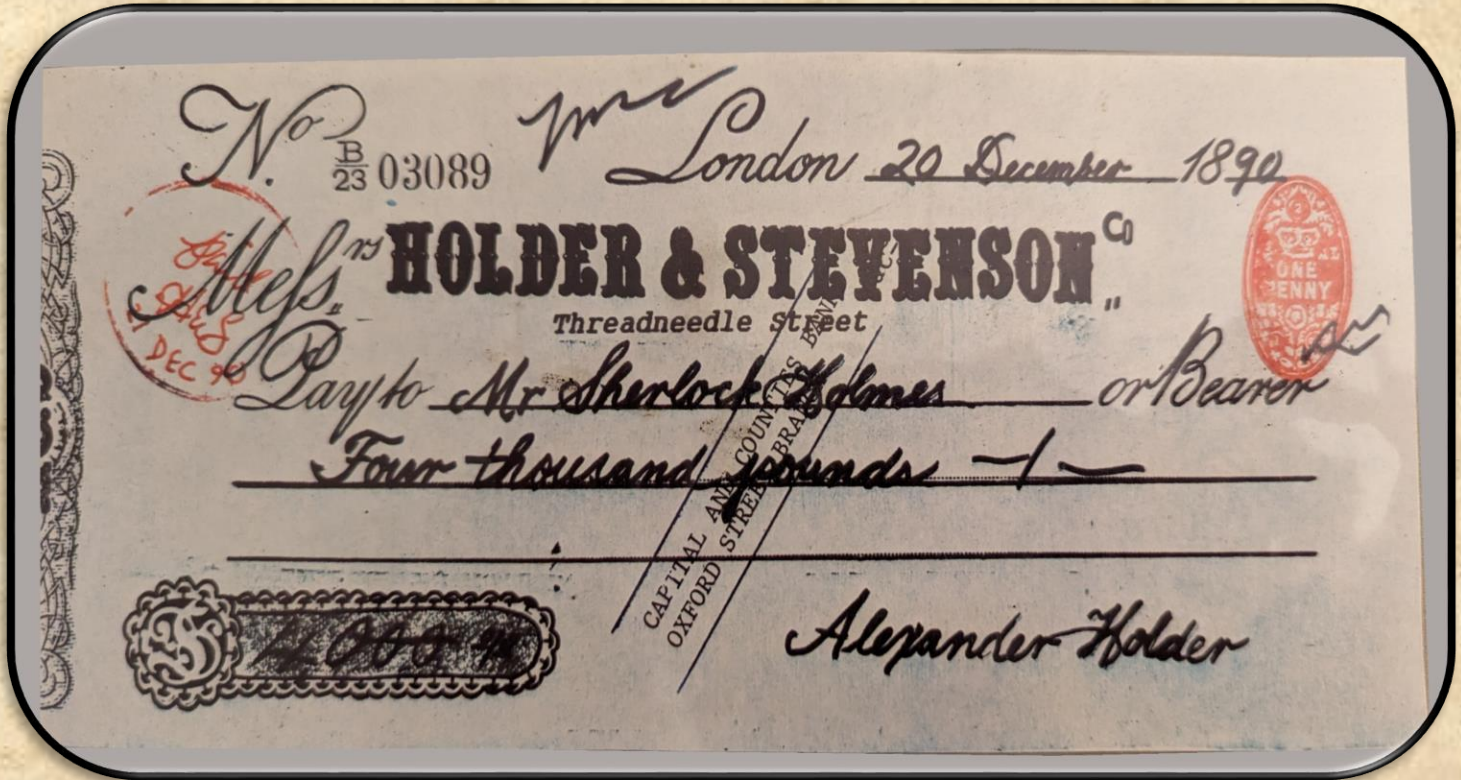 No. B/23 03089 London 20 December 1890
Messrs HOLDER & STEVENSON Co
Threadneedle Street
ONE PENNY
DEC 90
Pay to Mr Sherlock Holmes or Bearer
Four thousand pounds
CAPITAL AND COUNTIES BANK
OXFORD STREET BRANCH
Alexander Holder